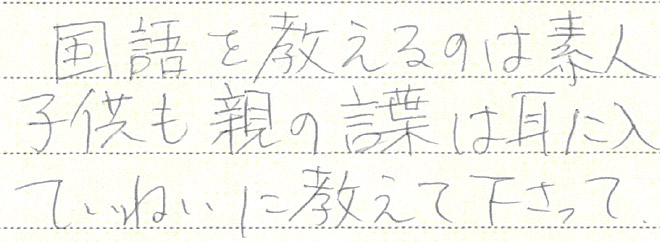 国語を教えるのは素人
子供も親の言葉は耳に入
ていねいに教えて下さって